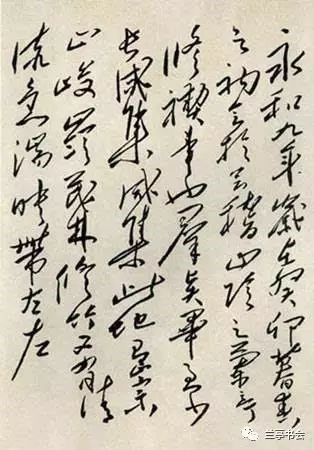 永和九年歲在癸卯暮春
之初會於會稽山陰之蘭亭
脩禊事也羣賢畢至少
長咸集咸集此地有崇
山峻嶺茂林修竹又有清
流急湍映帶左右
兰亭书会